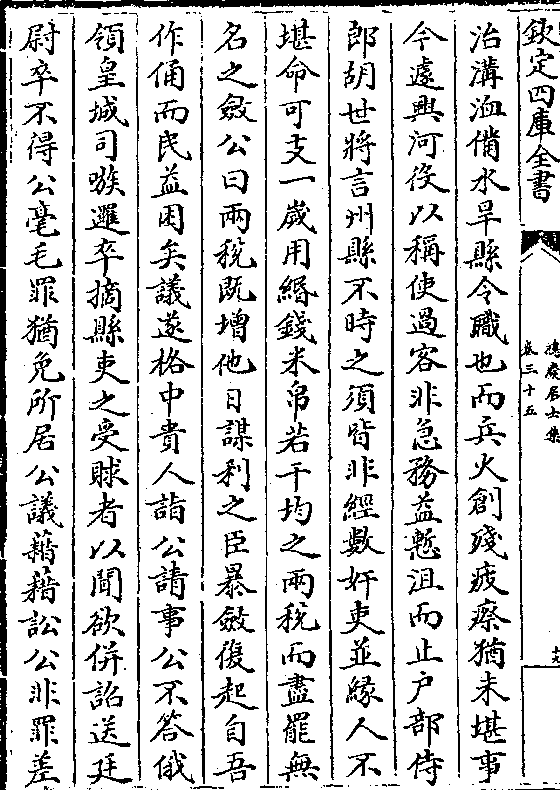 欽定四庫全書
卷三十五
治溝洫備水旱縣令職也而兵火創殘疲瘵猶未堪事
今遽興河役以稱使過客非急務益慙沮而止户部侍
郎胡世將言州縣不時之須皆非經數奸吏並緣人不
堪命可支一歲用緡錢米帛若干均之兩稅而盡罷無
名之斂公曰兩稅既增他日謀利之臣暴斂復起自吾
作俑而民益困矣議遂格中貴人詣公請事公不答俄
領皇城司嗾邏卒摘縣吏之受賕者以聞欲併詔送廷
尉卒不得公毫毛罪猶免所居公議藉藉訟公非罪差